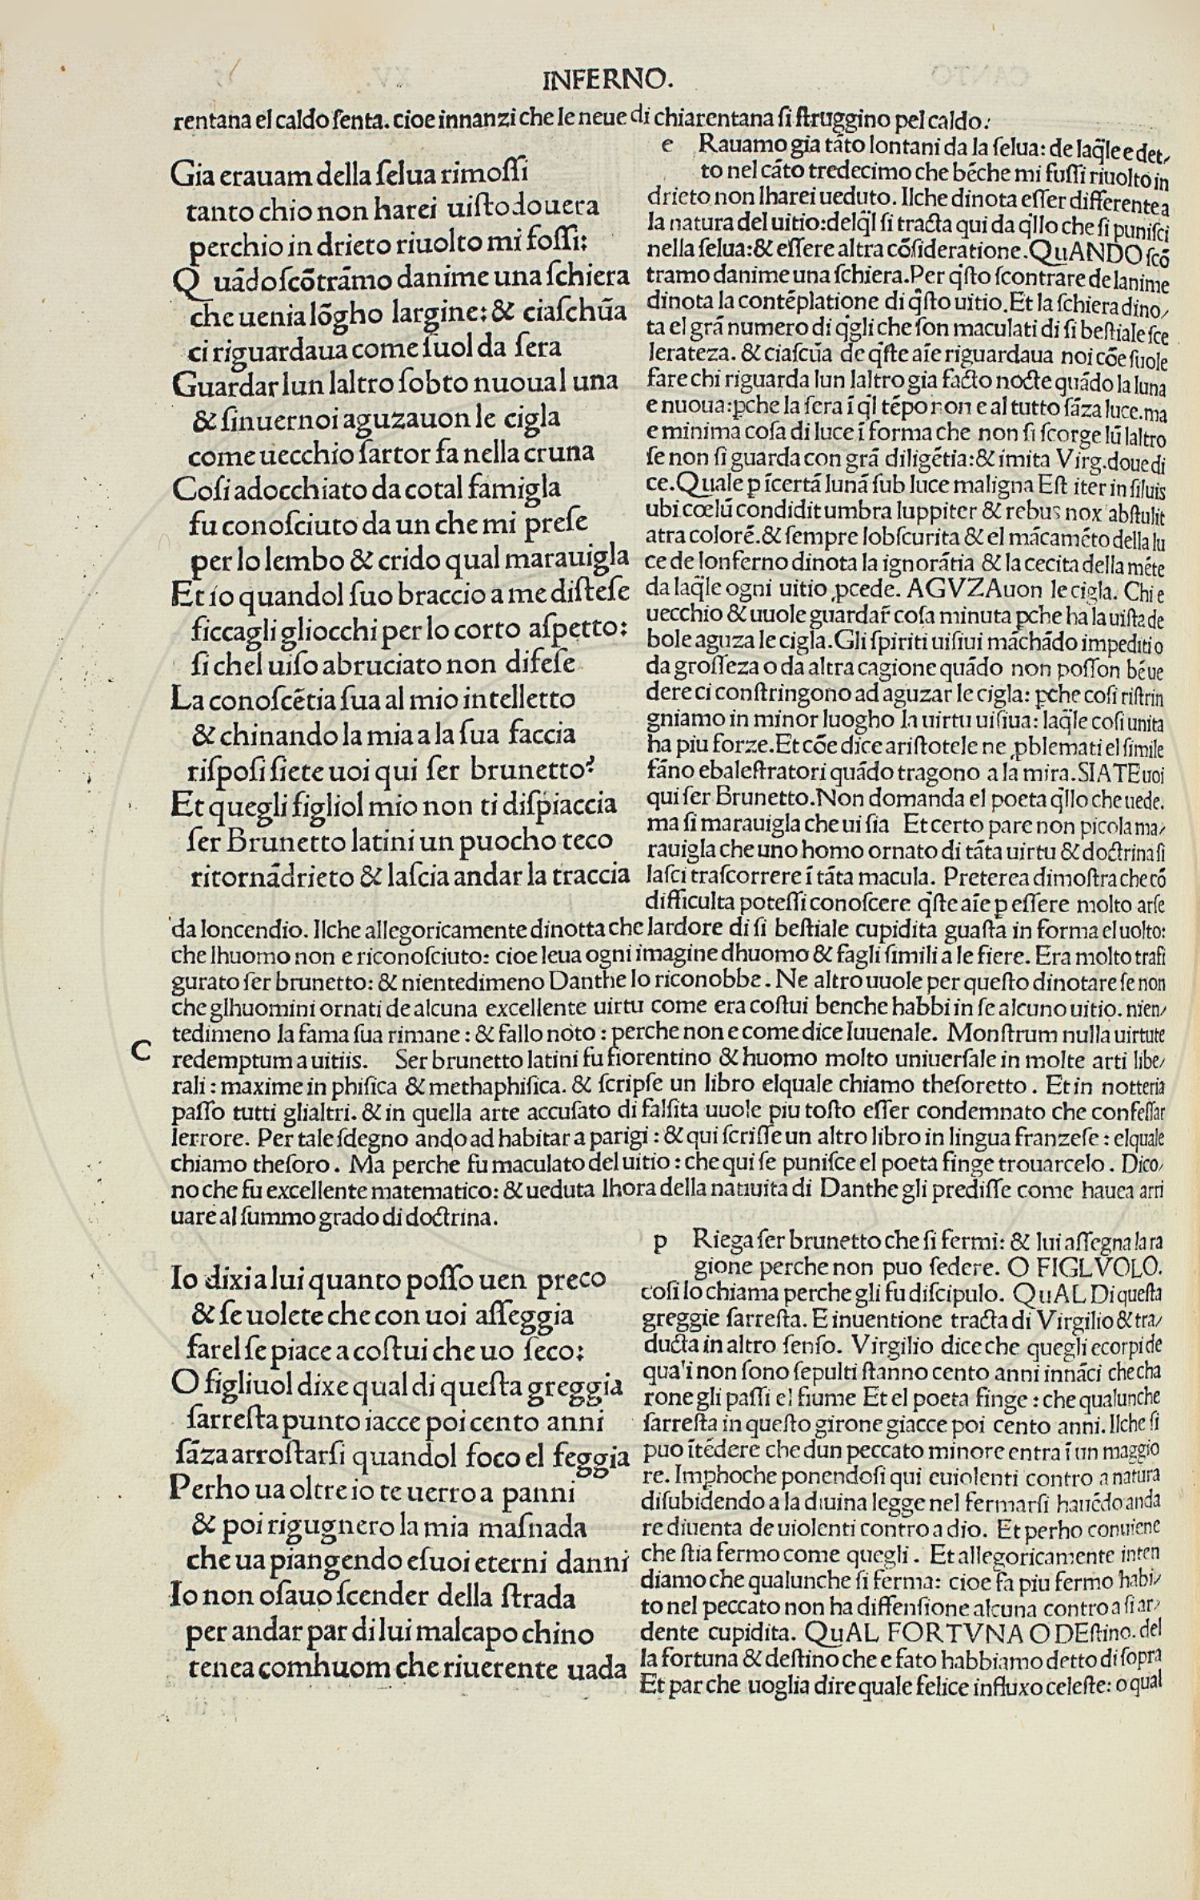 INFERNO.
rentana el caldo ſenta. cioe innanzi che le neue di chiarentana ſi ſtruggino pel caldo:
Gia erauam della ſelua rimoſſi
tanto chio non harei uiſto douera
perchio in drieto riuolto mi foſſi:
Quãdo ſcõtrãmo danime una ſchiera
che uenia lõgho largine: & ciaſchũa
ci riguardaua come ſuol da ſera
Guardar lun laltro ſobto nuoua luna
& ſinuer noi aguzauon le cigla
come uecchio ſartor fa nella cruna
Coſi adocchiato da cotal famigla
fu conoſciuto da un che mi preſe
per lo lembo & crido qual marauigla
Et io quandol ſuo braccio a me diſteſe
ficcagli gliocchi per lo corto aſpetto:
ſi chel uiſo abruciato non difeſe
La conoſcẽtia ſua al mio intelletto
& chinando la mia a la ſua faccia
riſpoſi ſiete uoi qui ſer brunetto?
Et quegli figliol mio non ti diſpiaccia
ſer Brunetto latini un puocho teco
ritornãdrieto & laſcia andar la traccia
e Rauamo gia tãto lontani da la ſelua: de laq̃le e det/
to nel cãto tredecimo che bẽche mi fuſſi riuolto in
drieto non lharei ueduto. Ilche dinota eſſer differente a
la natura del uitio: delq̃l ſi tracta qui da q̃llo che ſi puniſci
nella ſelua: & eſſere altra cõſideratione. QuANDO ſcõ
tramo danime una ſchiera. Per q̃ſto ſcontrare de lanime
dinota la contẽplatione di q̃ſto uitio. Et la ſchiera dino/
ta el grã numero di q̃gli che ſon maculati di ſi beſtiale ſce
lerateza. & ciaſcũa de q̃ſte aĩe riguardaua noi cõe ſuole
fare chi riguarda lun laltro gia facto nocte quãdo la luna
e nuoua: ꝑche la ſera ĩ q̃l tẽpo non e al tutto ſãza luce. ma
e minima coſa di luce ĩ forma che non ſi ſcorge lũ laltro
ſe non ſi guarda con grã diligẽtia: & imita Virg. doue di
ce. Quale ꝑ ĩcertã lunã ſub luce maligna Eſt iter in ſiluis
ubi cœlũ condidit umbra Iuppiter & rebus nox abſtulit
atra colorẽ. & ſempre lobſcurita & el mãcamẽto della lu
ce de lonferno dinota la ignorãtia & la cecita della mẽte
da laq̃le ogni uitio ꝓcede. AGVZAuon le cigla. Chi e
uecchio & uuole guardar̃ coſa minuta ꝑche ha la uiſta de
bole aguza le cigla. Gli ſpiriti uiſiui mãchãdo impediti o
da groſſeza o da altra cagione quãdo non poſſon bẽ ue
dere ci conſtringono ad aguzar le cigla: ꝑche coſi riſtrin
gniamo in minor luogho la uirtu uiſiua: laq̃le coſi unita
ha piu forze. Et cõe dice ariſtotele ne ꝓblemati el ſimile
fãno e baleſtratori quãdo tragono a la mira. SIATE uoi
qui ſer Brunetto. Non domanda el poeta q̃llo che uede.
ma ſi marauigla che ui ſia Et certo pare non picola ma/
rauigla che uno homo ornato di tãta uirtu & doctrina ſi
laſci traſcorrere ĩ tãta macula. Preterea dimoſtra che cõ
difficulta poteſſi conoſcere q̃ſte aĩe ꝑ eſſere molto arſe
da loncendio. Ilche allegoricamente dinotta che lardore di ſi beſtiale cupidita guaſta in forma el uolto:
che lhuomo non e riconoſciuto: cioe leua ogni imagine dhuomo & fagli ſimili a le fiere. Era molto traſi
gurato ſer brunetto: & nientedimeno Danthe lo riconobbe. Ne altro uuole per queſto dinotare ſe non
che glhuomini ornati de alcuna excellente uirtu come era coſtui benche habbi in ſe alcuno uitio. nien/
tedimeno la fama ſua rimane: & fallo noto: perche non e come dice Iuuenale. Monſtrum nulla uirtute
C redemptum a uitiis. Ser brunetto latini fu fiorentino & huomo molto uniuerſale in molte arti libe/
rali: maxime in phiſica & methaphiſica. & ſcripſe un libro elquale chiamo theſoretto. Et in notteria
paſſo tutti glialtri. & in quella arte accuſato di falſita uuole piu toſto eſſer condemnato che confeſſar
lerrore. Per tale ſdegno ando ad habitar a parigi: & qui ſcriſſe un altro libro in lingua franzeſe: elquale
chiamo theſoro. Ma perche fu maculato del uitio: che qui ſe puniſce el poeta finge trouarcelo. Dico/
no che fu excellente matematico: & ueduta lhora della natiuita di Danthe gli prediſſe come hauea arri
uare al ſummo grado di doctrina.
Io dixi a lui quanto poſſo uen preco
& ſe uolete che con uoi aſſeggia
farel ſe piace a coſtui che uo ſeco:
O figliuol dixe qual di queſta greggia
ſarreſta punto iacce poi cento anni
ſãza arroſtarſi quandol foco el feggia
Perho ua oltre io te uerro a panni
& poi rigugnero la mia maſnada
che ua piangendo eſuoi eterni danni
Io non oſauo ſcender della ſtrada
per andar par di lui mal capo chino
tenea comhuom che riuerente uada
p Riega ſer brunetto che ſi fermi: & lui aſſegna la ra
gione perche non puo ſedere. O FIGLVOLO.
coſi lo chiama perche gli fu diſcipulo. QuAL Di queſta
greggie ſarreſta. E inuentione tracta di Virgilio & tra/
ducta in altro ſenſo. Virgilio dice che quegli e corpi de
quali non ſono ſepulti ſtanno cento anni innãci che cha
rone gli paſſi el fiume Et el poeta finge: che qualunche
ſarreſta in queſto girone giacce poi cento anni. Ilche ſi
puo ĩtẽdere che dun peccato minore entra ĩ un maggio
re. Imꝑhoche ponendoſi qui e uiolenti contro a natura
diſubidendo a la diuina legge nel fermarſi hauẽdo anda
re diuenta de uiolenti contro a dio. Et perho conuiene
che ſtia fermo come quegli. Et allegoricamente inten
diamo che qualunche ſi ferma: cioe fa piu fermo habi/
to nel peccato non ha diffenſione alcuna contro a ſi ar/
dente cupidita. QuAL FORTVNA O DEſtino. del
la fortuna & deſtino che e fato habbiamo detto di ſopra
Et par che uoglia dire quale felice influxo celeſte: o qual